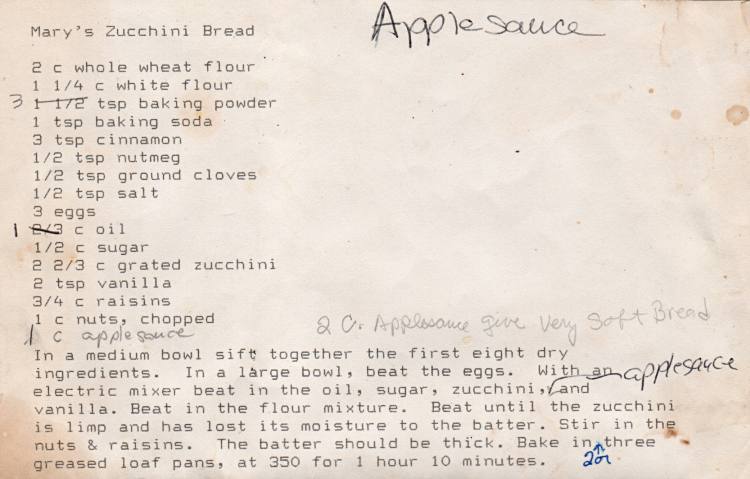 Mary's Zucchini Bread
Applesauce
2 c whole wheat flour
1 1/4 c white flour
3 1 1/2 tsp baking powder
1 tsp baking soda
3 tsp cinnamon
1/2 tsp nutmeg
1/2 tsp ground cloves
1/2 tsp salt
3 eggs
1 2/3 c oil
1/2 c sugar
2 2/3 c grated zucchini
2 tsp vanilla
3/4 c raisins
1 c nuts, chopped
1 c applesauce
2 C. Applesauce give very Soft Bread
In a medium bowl sift together the first eight dry
ingredients. In a large bowl, beat the eggs. With an
electric mixer beat in the oil, sugar, zucchini, applesauce and
vanilla. Beat in the flour mixture. Beat until the zucchini
is limp and has lost its moisture to the batter. Stir in the
nuts & raisins. The batter should be thick. Bake in 2 or three
greased loaf pans, at 350 for 1 hour 10 minutes.